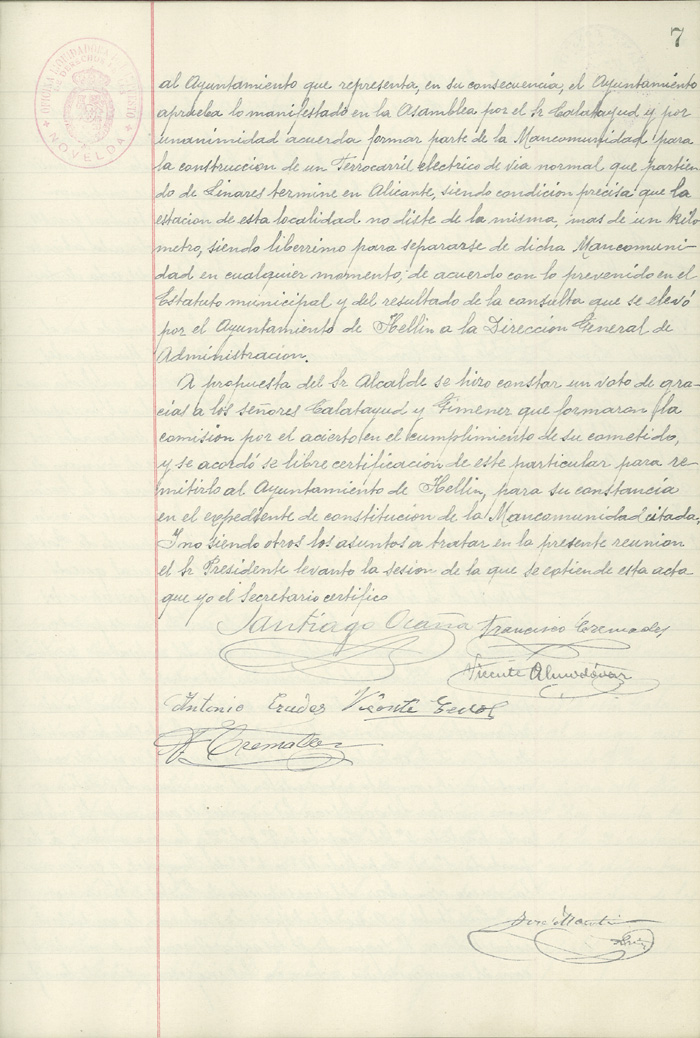 7
OFICINA LIQUIDADORA
NOVELDA
al Ayuntamiento que representa, en su consecuencia, el Ayuntamiento
aprueba lo manifestado en la Asamblea por el Sr Calatayud y por
unanimidad acuerda formar parte de la Mancomunidad para
la construccion de un Ferrocarril electrico de via normal que partien
do de Linares termine en Alicante, siendo condicion precisa que la
estacion de esta localidad no diste de la misma, mas de un kilo
metro, siendo liberrimo para separarse de dicha Mancomuni-
dad en cualquier momento, de acuerdo con lo prevenido en el
Estatuto municipal y del resultado de la consulta que se elevó
por el Ayuntamiento de Hellin a la Direccion General de
Administracion.
A propuesta del Sr Alcalde se hizo constar un voto de gra-
cias a los señores Calatayud y Gimenez que formaron la
comision por el acierto en el cumplimiento de su cometido,
y se acordó se libre certificacion de este particular para re
mitirlo al Ayuntamiento de Hellin, para su constancia
en el expediente de constitucion de la Mancomunidad citada,
Y no siendo otros los asuntos a tratar en la presente reunion
el Sr Presidente levanto la sesion de la que se extiende esta acta
que yo el Secretario certifico
Santiago Ocaña Francisco Cremades
Vicente Almodóvar
Antonio Vicente
Cremades
José